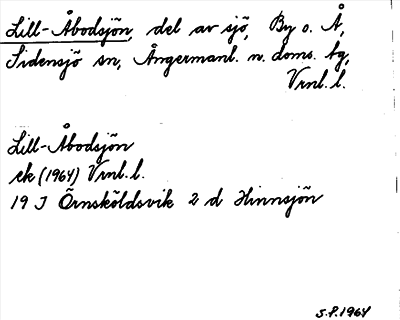 Lill-Åbodsjön, del av sjö, By o. Å,
Sidensjö sn, Ångermanl. n. doms. tg,
Vrnl. l.
Lill-Åbodsjön
ek (1964) Vrnl. l.
19 J Örnsköldsvik 2 d Hinnsjön
S.P. 1964